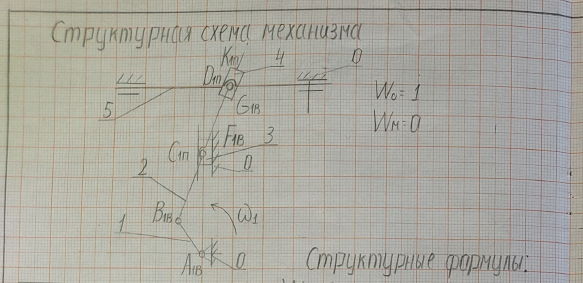 Структурная схема механизма
K1п
4
0
D1п
5
G1в
W0=1
Wм=0
F1в
3
C1п
0
2
B1в
ω1
1
A1в
0
Структурные формулы: